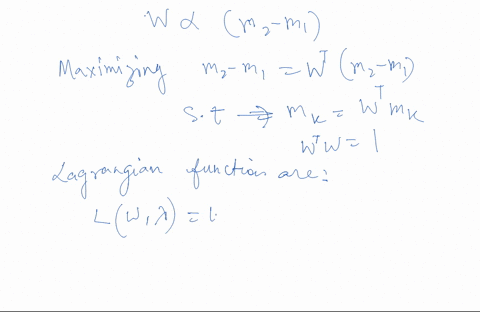 W ∝ (m₂-m₁)
Maximizing m₂-m₁ = Wᵀ (m₂-m₁)
S.t ⇒ mₖ = Wᵀmₖ
WᵀW = 1
Lagrangian function are:
L(W,λ) =